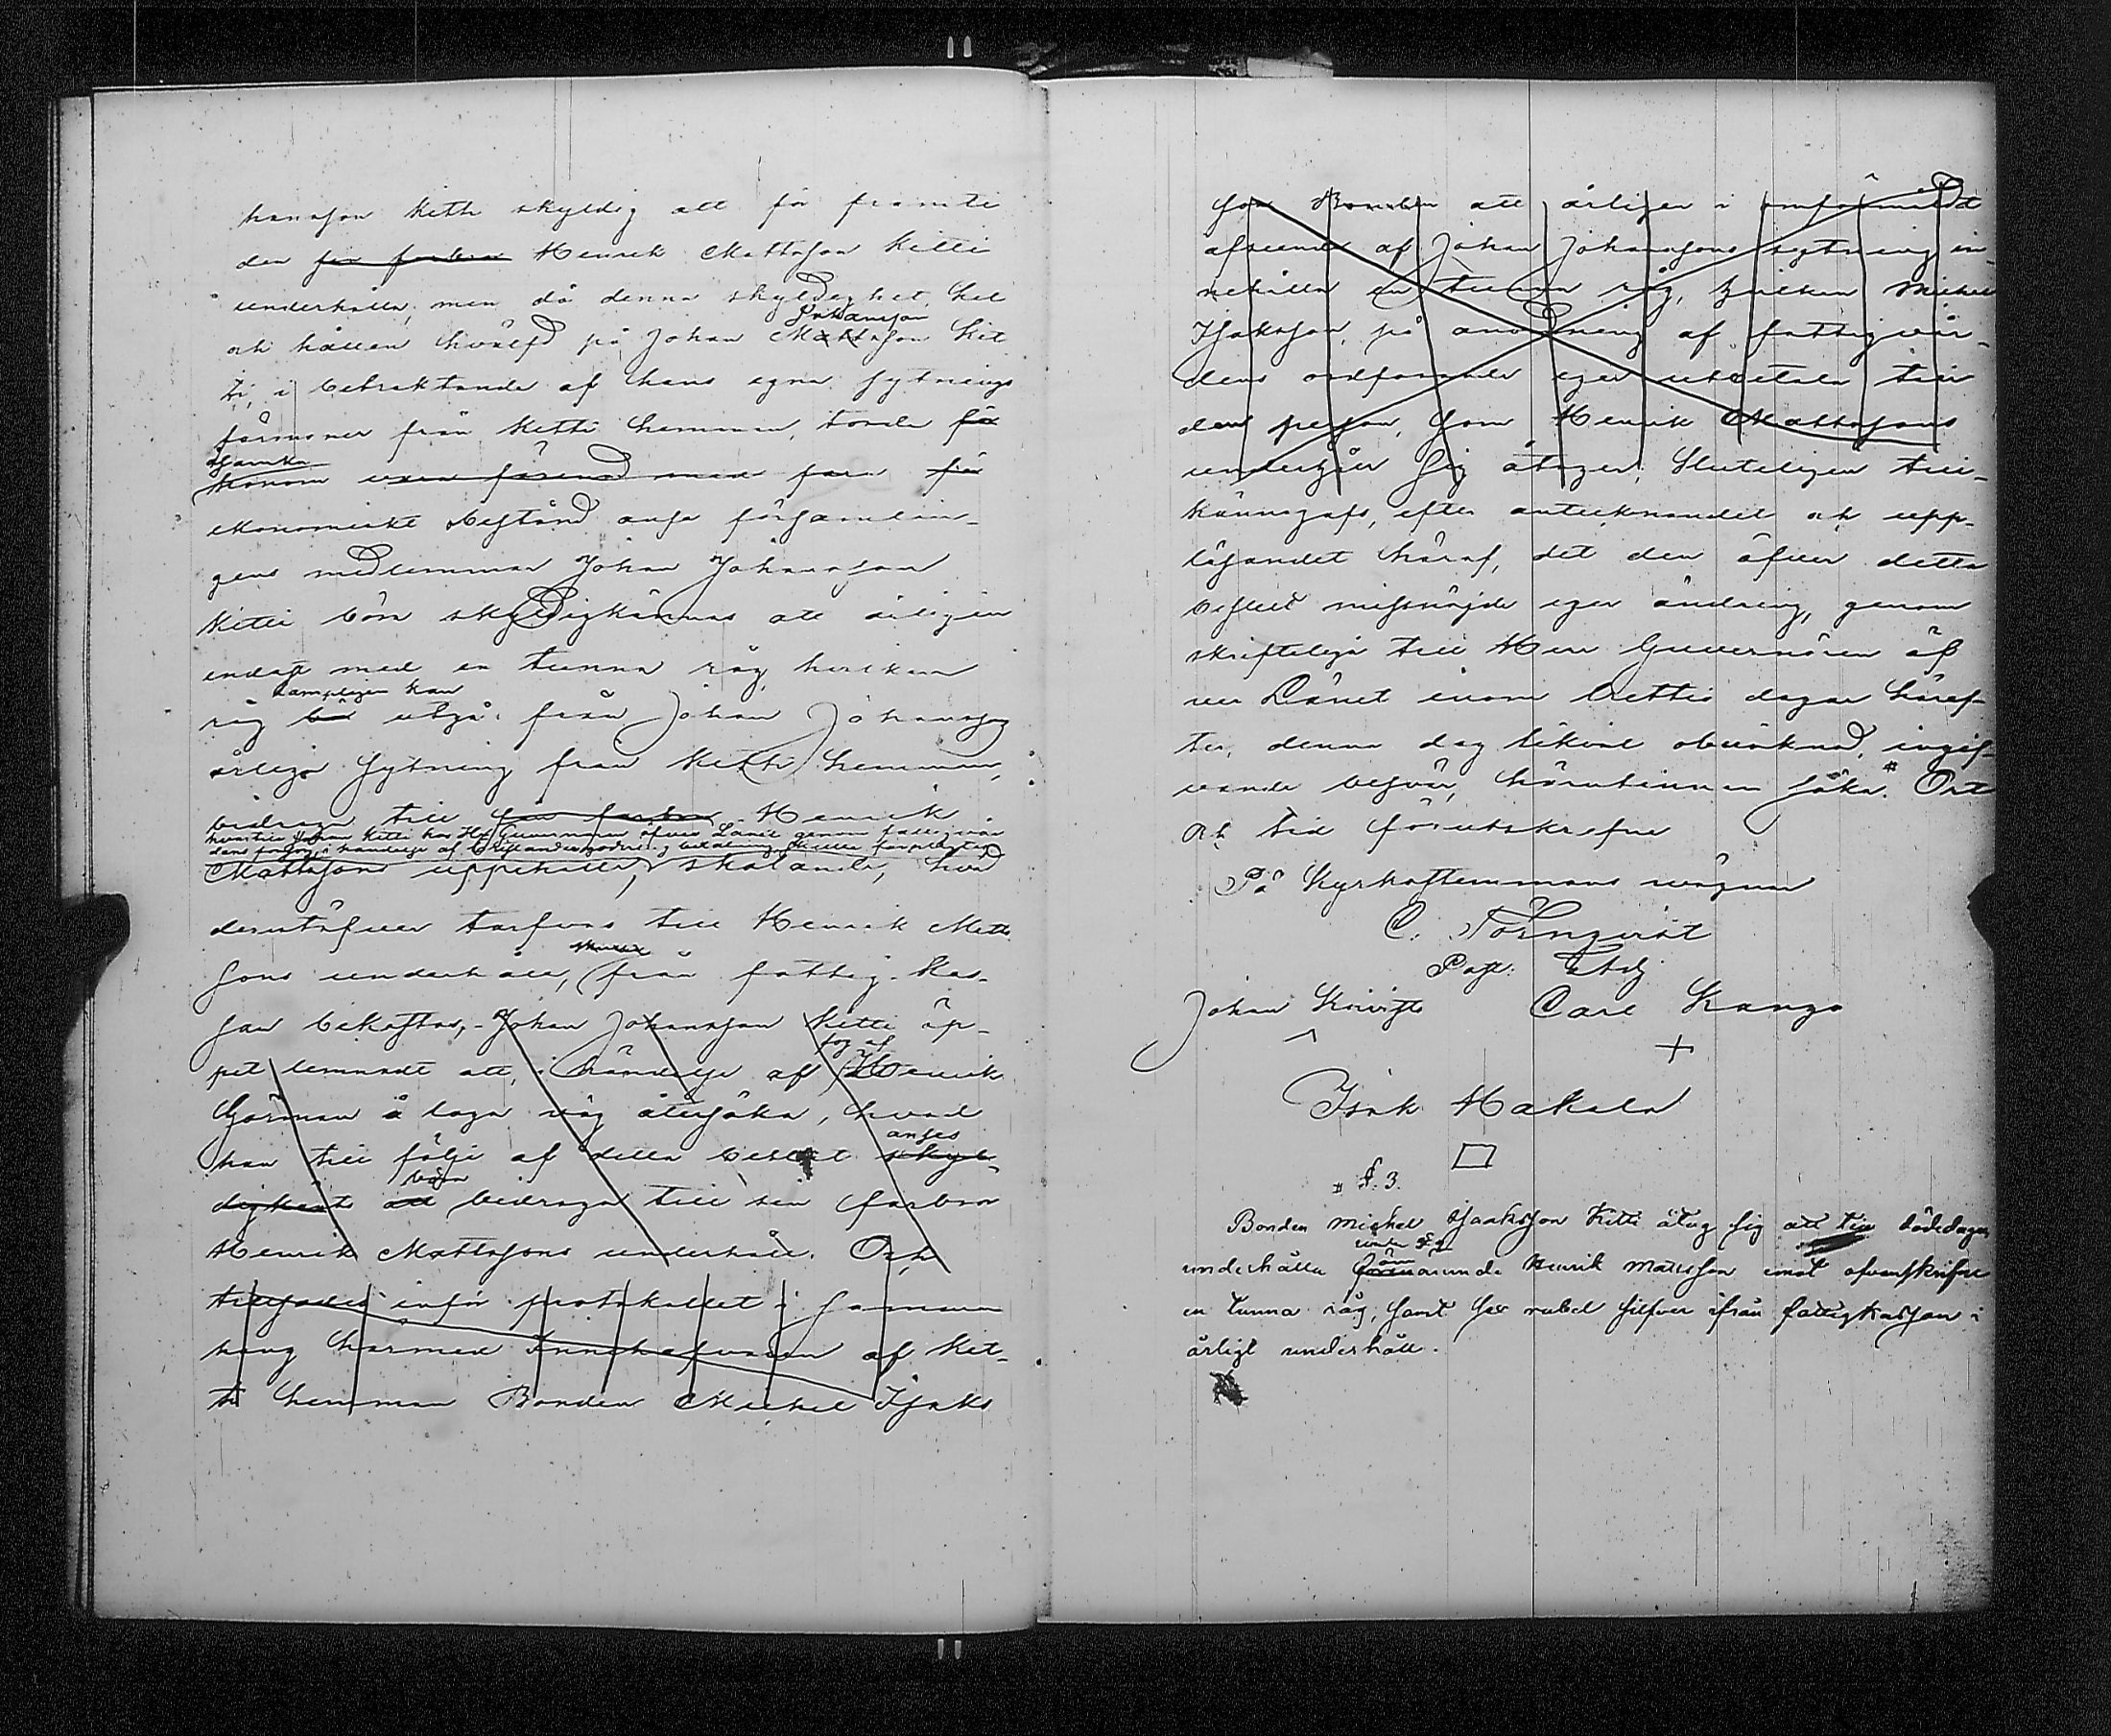 hansson Kitti skyldig att för framti
den sin farbror Henrik Mattsson Kitti
underhålla; men då denna skyldighet, hel
Johansson
och hållen hvälfd på Johan Mattsson Kit
ti, i betraktande af hans egna sytnings
förmoner från Kitti hemman, torde för
ekonomiskt bestånd anse församlin-
gens medlemmar Johan Johansson
Kitti böra skyldigkännas att årligen
endast med en tunna råg, hvilken
lämpligen kan
råg bör utgå från Johan Johansson
årliga sytning från Kitti hemman,
bidraga till sin farbror Henrik
Mattssons uppehälle, skolande, hvad
derutöfver tarfvas till Henrik Matts
sons underhåll, från fattig-kas-
san bekostas, Johan Johansson Kitti öp-
pet lemnadt att, i händelse af Henrik
han till följe af detta beslut
anses
böra
att bidraga till sin farbror
Henrik Mattssons underhåll. Och
inför protokollet i samman
hang härmed Innehafvaren af Kit-
ti hemman Bonden Michel Isaks
son Bonden att årligen i
afseende af Johan Johanssons sytning in-
nehålla en tunna råg, hvilken Michel
Isaksson, på anordning af fattigvår-
dens ordförande eger utbetala till
den person, som Henrik Mattssons
sig åtager. Sluteligen till-
kännagafs, efter antecknandet och upp-
läsandet häraf, det den öfver detta
beslut missnöjde eger ändring, genom
skrifteliga till Herr Guvernören öf
ver Länet inom trettio dagar häref-
ter, denna dag likväl oberäknad, ingif-
vande besvär, härutinnan söka. # Ort
och tid förutskrefne
På Kyrkostemmans vägnar
C. Törnqvist
Past. Adj
Johan Koivisto Carl Kango
+
Isak Makela
# §. 3.
Bonden Michel Isaksson Kitti åtog sig att till dödedagen
underhålla Henrik Mattsson emot ofvanskrifne
en tunna råg, samt sex rubel silfver ifrån fattigkassan i
årligt underhåll.